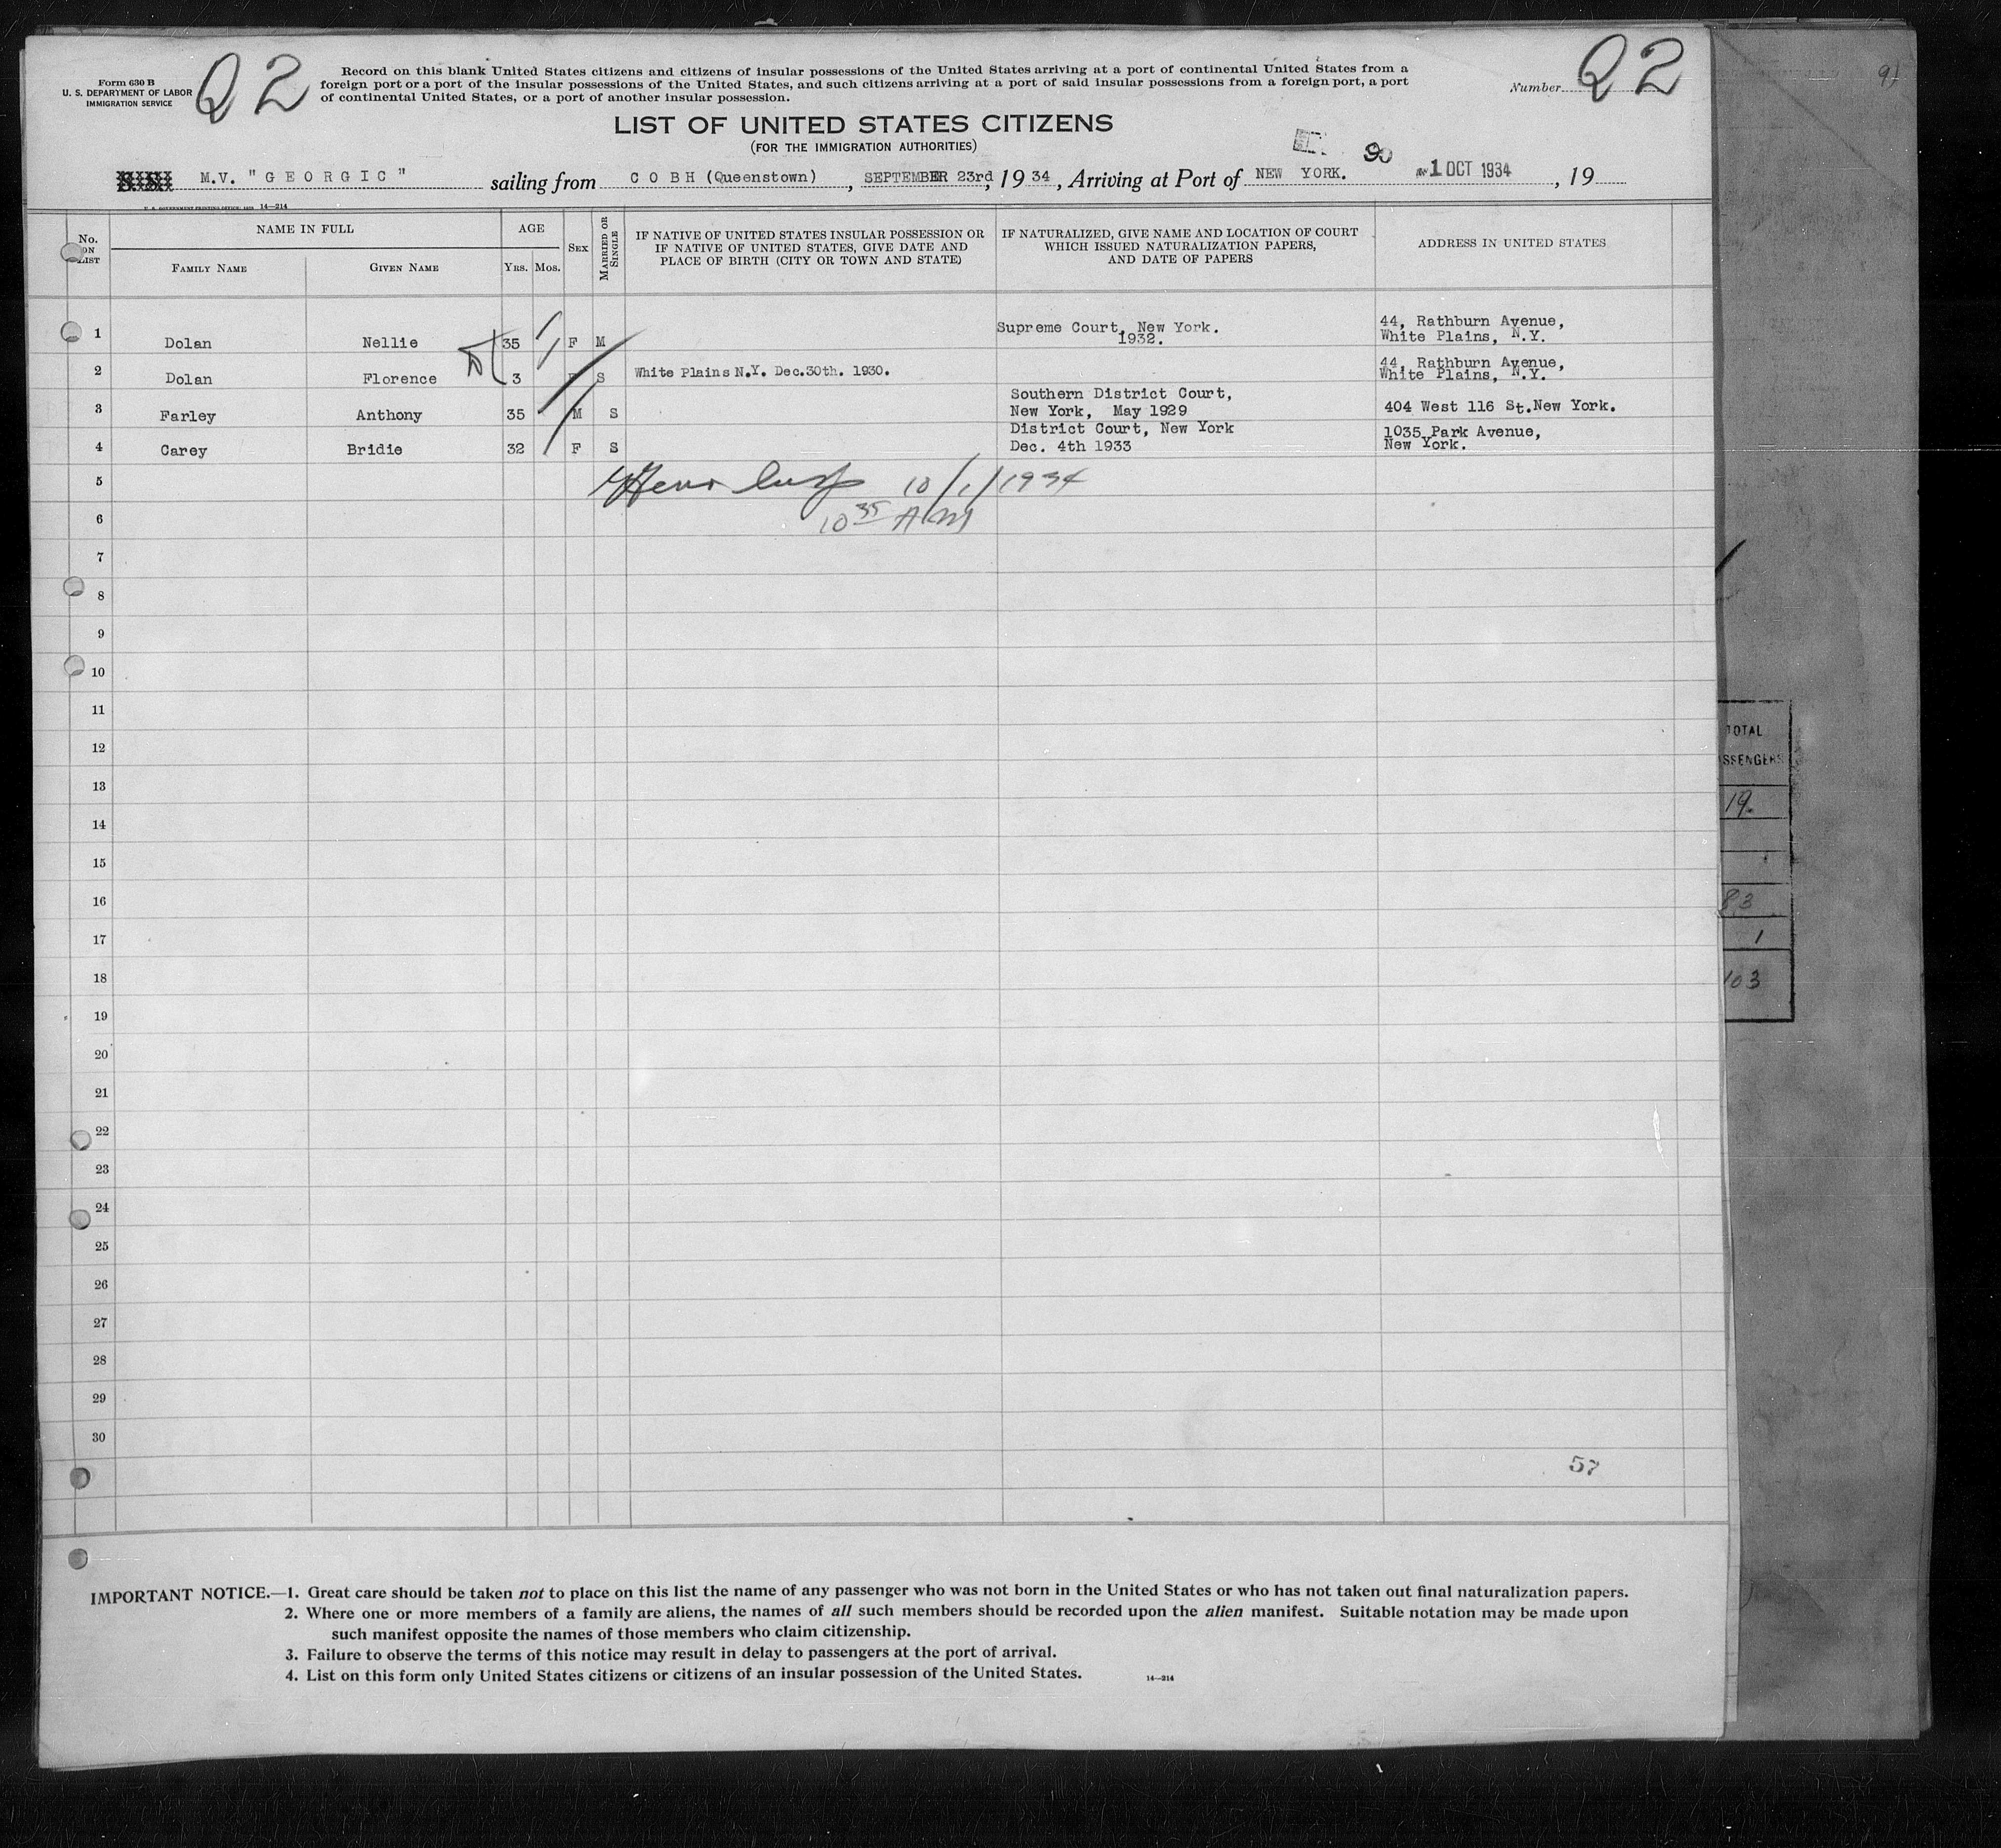 Form 630 B
U. S. DEPARTMENT OF LABOR
IMMIGRATION SERVICE
Q2
Record on this blank United States citizens and citizens of insular possessions of the United States arriving at a port of continental United States from a
foreign port or a port of the insular possessions of the United States, and such citizens arriving at a port of said insular possessions from a foreign port, a port
of continental United States, or a port of another insular possession.
Number Q2
LIST OF UNITED STATES CITIZENS
(FOR THE IMMIGRATION AUTHORITIES)
90
S. S. M.V. "GEORGIC" sailing from COBH (Queenstown), SEPTEMBER 23rd, 1934, Arriving at Port of NEW YORK. 1 OCT 1934, 19
14—214
No. ON LIST
NAME IN FULL
FAMILY NAME
GIVEN NAME
AGE
YRS. MOS.
SEX
MARRIED OR SINGLE
IF NATIVE OF UNITED STATES INSULAR POSSESSION OR
IF NATIVE OF UNITED STATES, GIVE DATE AND
PLACE OF BIRTH (CITY OR TOWN AND STATE)
IF NATURALIZED, GIVE NAME AND LOCATION OF COURT
WHICH ISSUED NATURALIZATION PAPERS,
AND DATE OF PAPERS
ADDRESS IN UNITED STATES
1 Dolan Nellie 35 F M Supreme Court, New York. 1932. 44, Rathburn Avenue, White Plains, N.Y.
2 Dolan Florence 3 S White Plains N.Y. Dec.30th. 1930. 44, Rathburn Avenue, White Plains, N.Y.
3 Farley Anthony 35 M S Southern District Court, New York, May 1929 404 West 116 St.New York.
4 Carey Bridie 32 F S District Court, New York Dec. 4th 1933 1035 Park Avenue, New York.
5 10/1/1934
6 10 35 AM
7
8
9
10
11
12
13
14
15
16
17
18
19
20
21
22
23
24
25
26
27
28
29
30
57
TOTAL
SSENGERS
19.
83
1
103
IMPORTANT NOTICE.—1. Great care should be taken not to place on this list the name of any passenger who was not born in the United States or who has not taken out final naturalization papers.
2. Where one or more members of a family are aliens, the names of all such members should be recorded upon the alien manifest. Suitable notation may be made upon
such manifest opposite the names of those members who claim citizenship.
3. Failure to observe the terms of this notice may result in delay to passengers at the port of arrival.
4. List on this form only United States citizens or citizens of an insular possession of the United States.
14—214